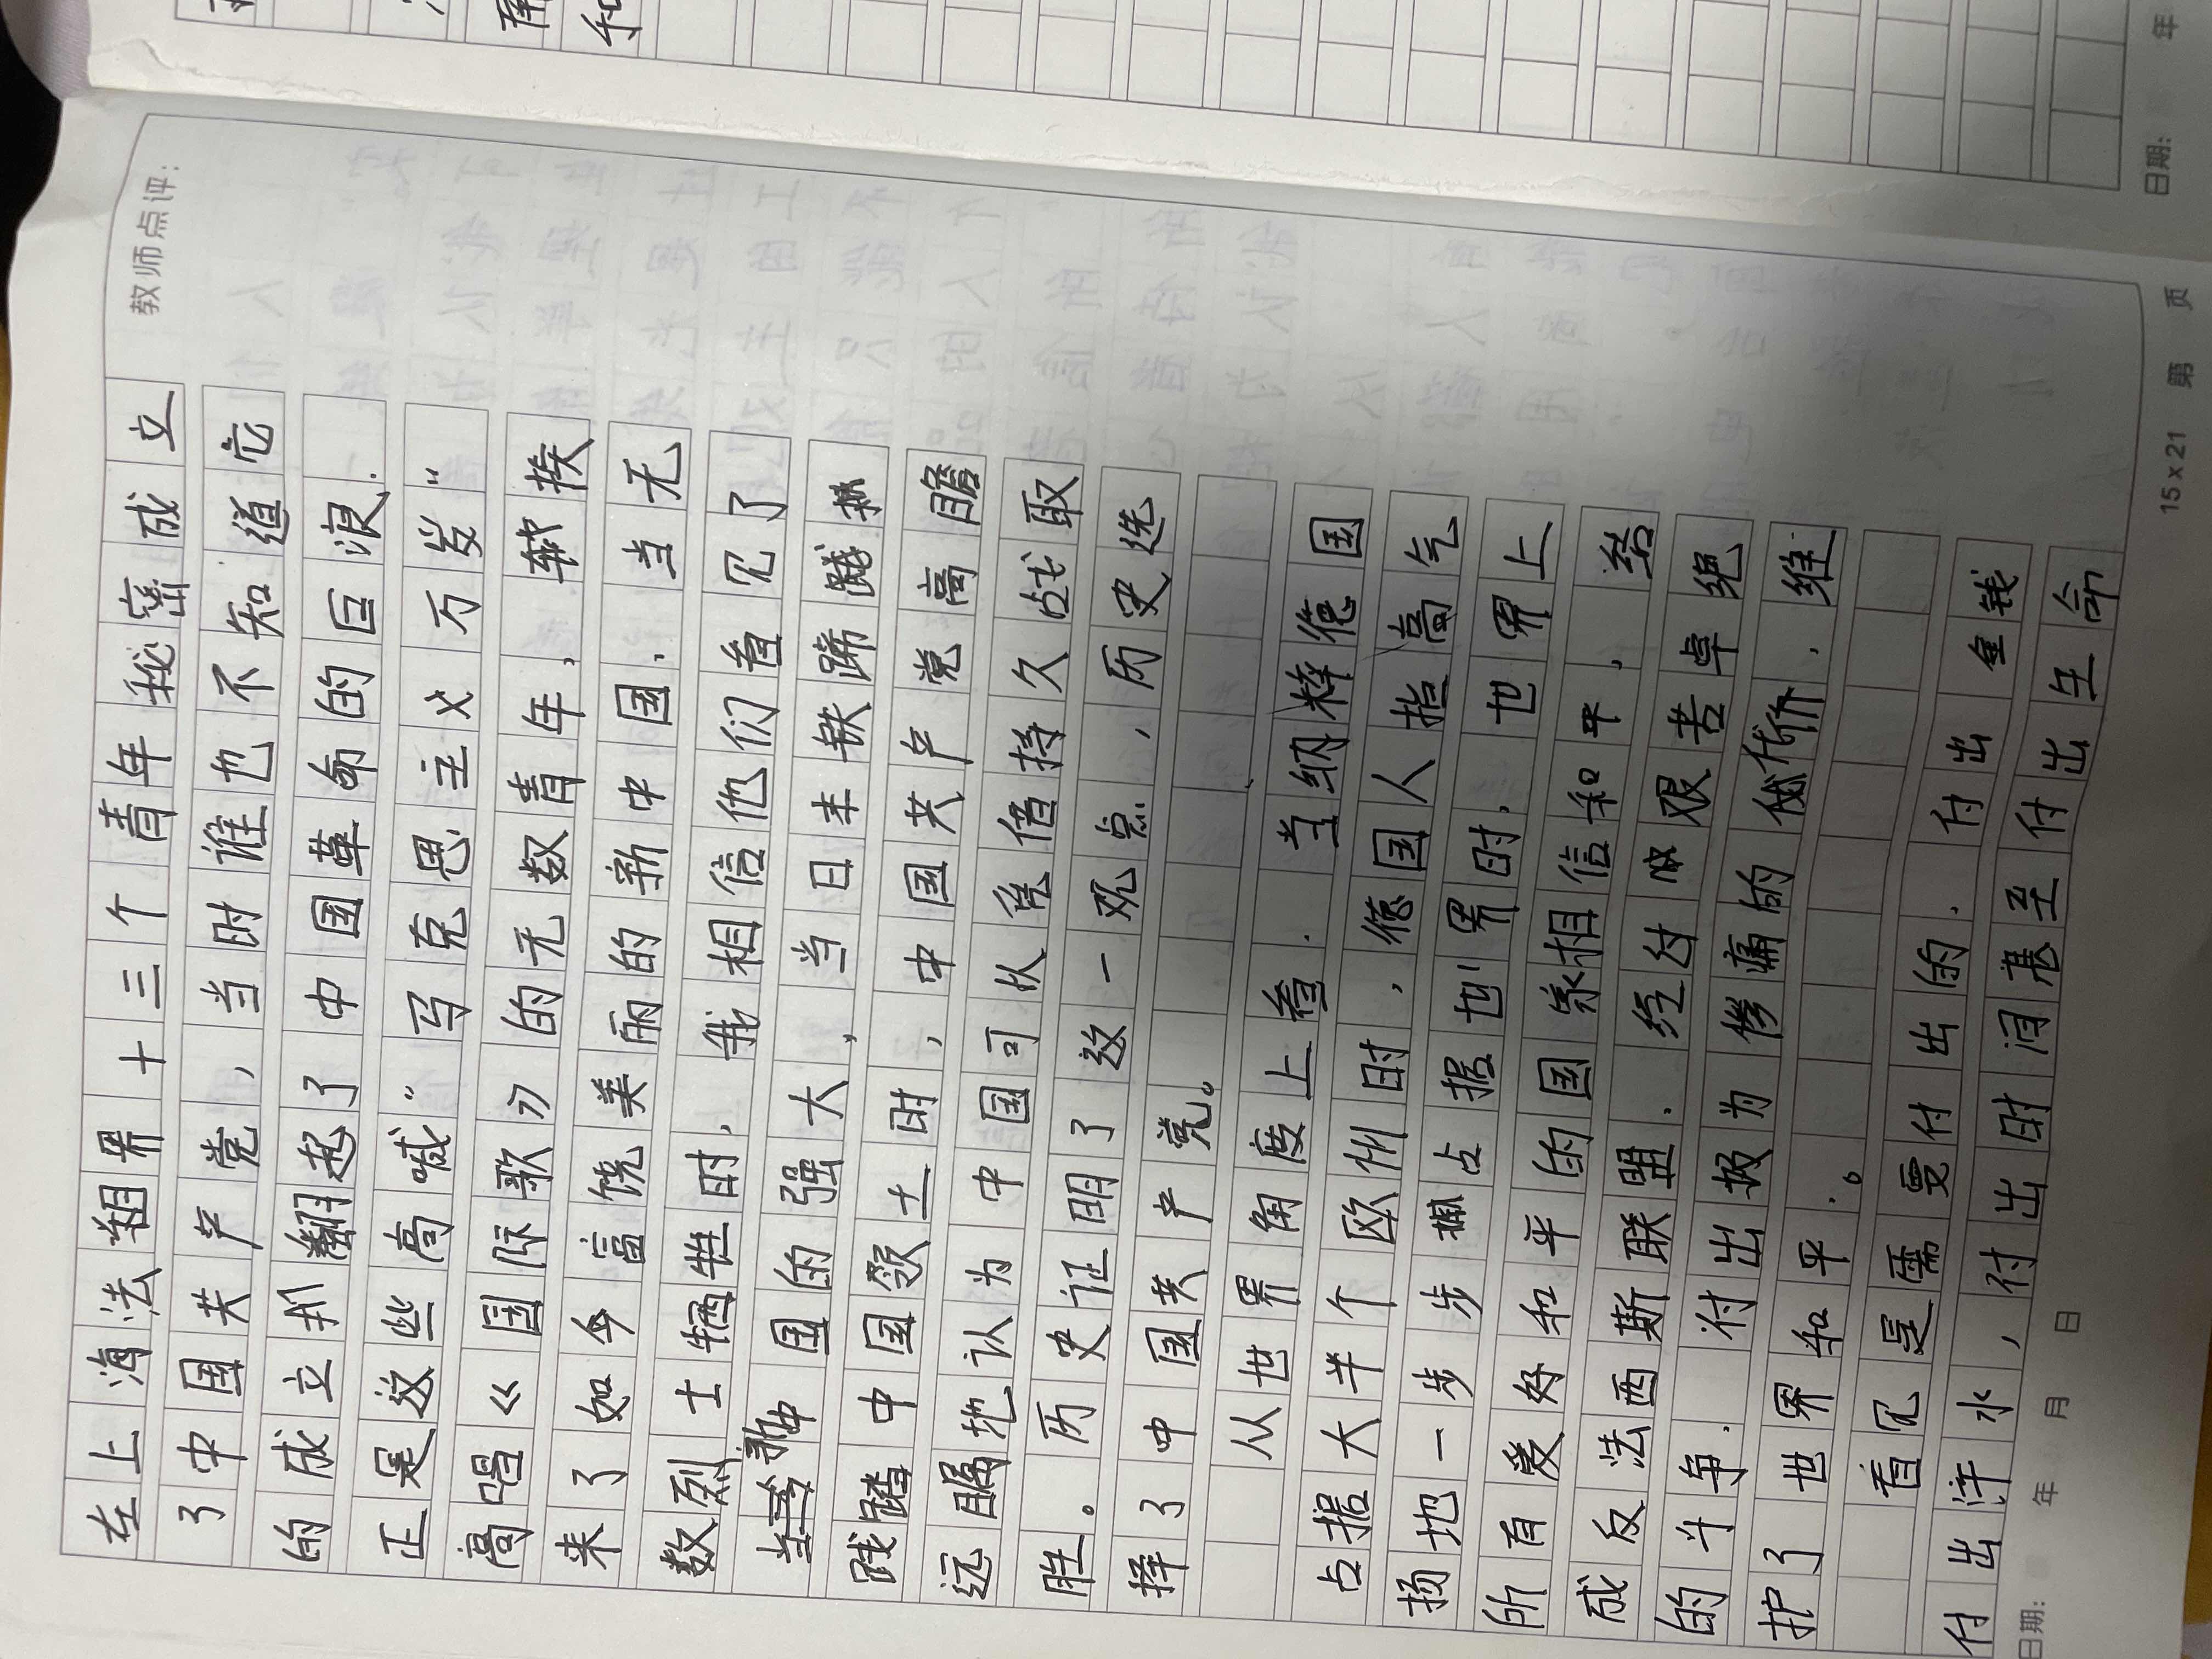 教师点评:
在上海法租界十三个青年秘密成立
了中国共产党，当时谁也不知道它
的成立翻起了中国革命的巨浪.
正是这些高喊"马克思主义万岁"
高唱《国际歌》的无数青年,换
来了如今富饶美丽的新中国,当无
数烈士牺牲时,我相信他们看见了
新中国的强大,当日本铁蹄
践踏中国领土时,中国共产党高瞻
远瞩地认为中国可以凭借持久战取
胜。历史证明了这一观点,历史选
择了中国共产党。
从世界角度上看.当纳粹德国
占据大半个欧州时,德国人指高气
扬地一步步占据世界时,世界上
所有爱好和平的国家相信和平,结
成反法西斯联盟.经过艰苦卓绝
的斗争.付出极为惨痛的代价.维
护了世界和平.。
看见是需要付出的.付出金钱
付出汗水,付出时间甚至付出生命
日期: 年 月 日
15×21 第 页
日期: 年